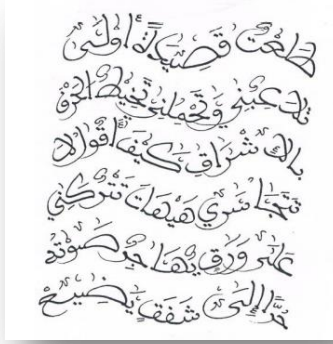 طالعت قصيدة أولى
وتحملني تخيط الحرف
بالاشراق كيف أقول لا
تتجاسري هيهات تتركني
على ورق صوته
حرا إلى شفق يضيع